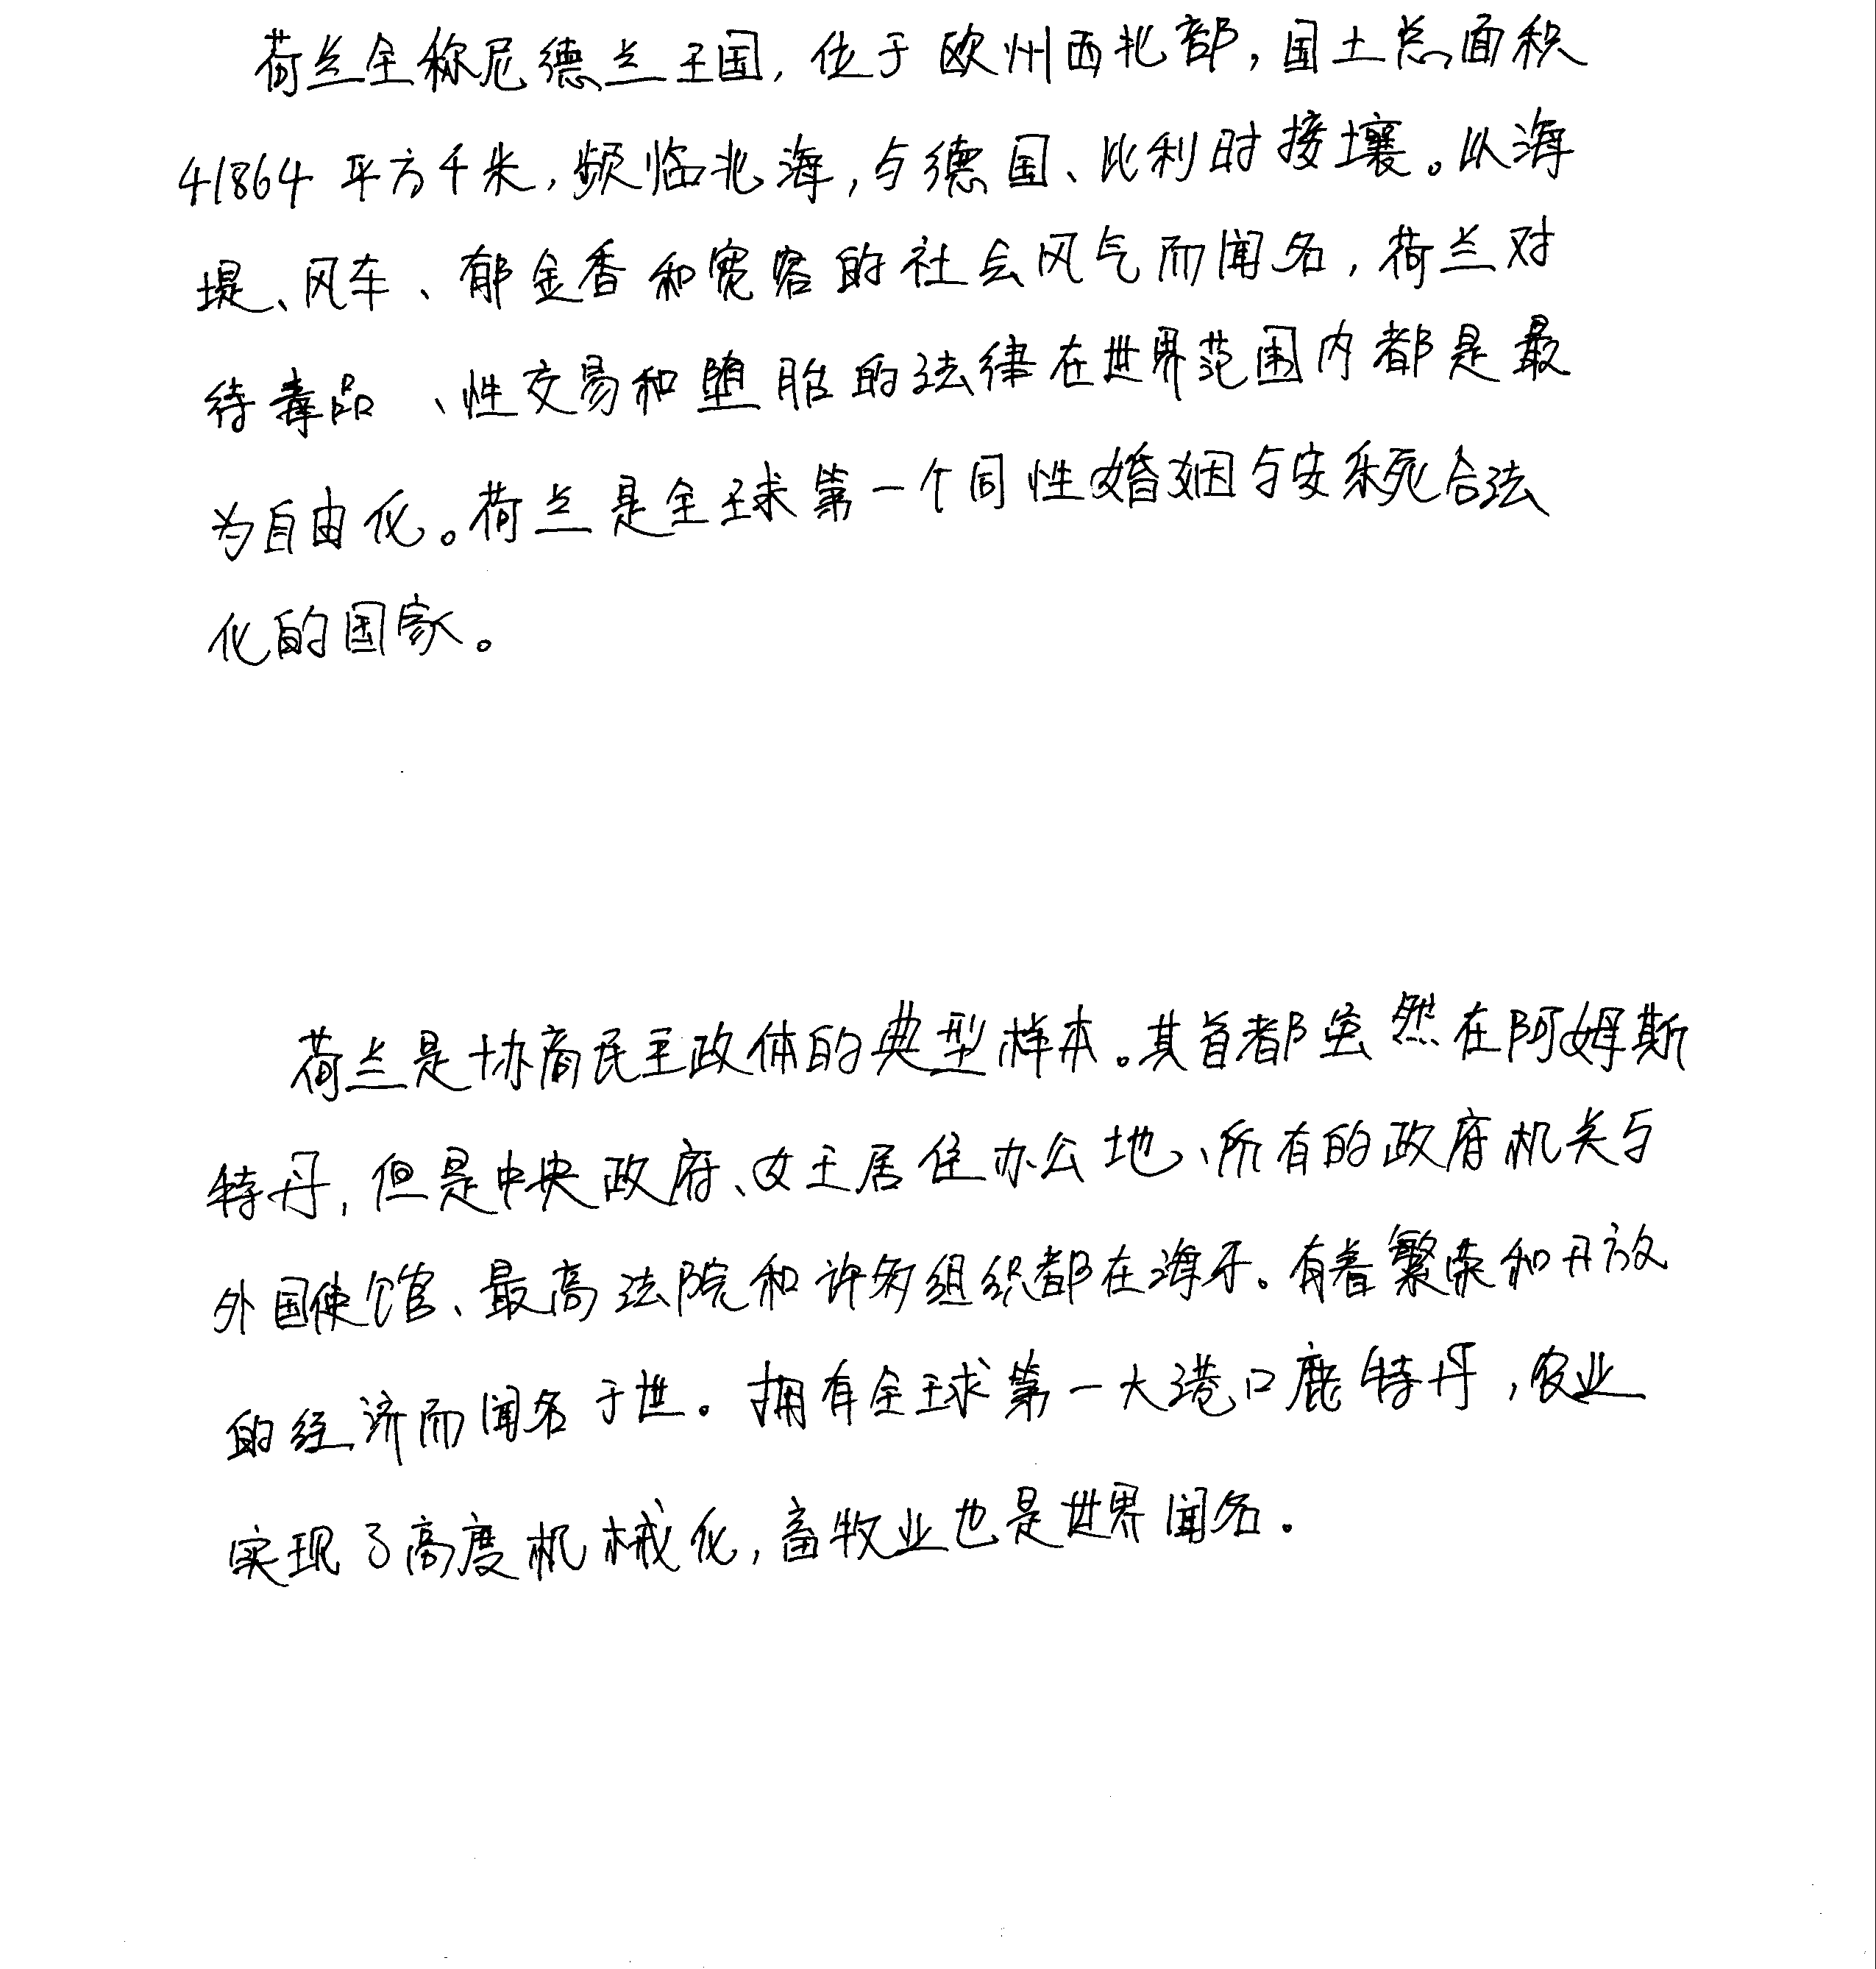 荷兰全称尼德兰王国，位于欧州西北部，国土总面积
41864平方千米，频临北海，与德国、比利时接壤。以海
堤、风车、郁金香和宽容的社会风气而闻名，荷兰对
待毒品、性交易和堕胎的法律在世界范围内都是最
为自由化。荷兰是全球第一个同性婚姻与安乐死合法
化的国家。
荷兰是协商民主政体的典型样本。其首都虽然在阿姆斯
特丹，但是中央政府、女王居住办公地、所有的政府机关与
外国使馆、最高法院和许多组织都在海牙。有着繁荣和开放
的经济而闻名于世。拥有全球第一大港口鹿特丹，农业
实现了高度机械化，畜牧业也是世界闻名.